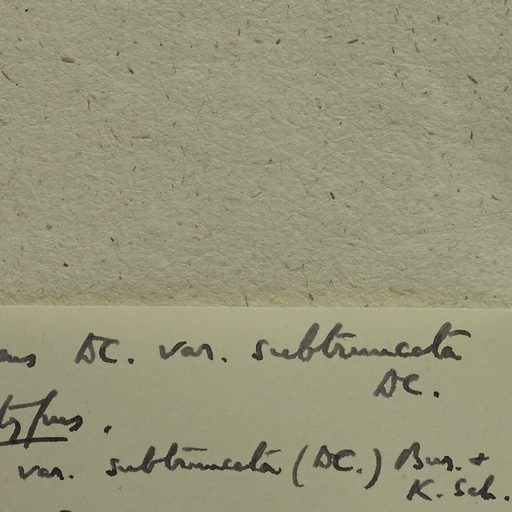 ans DC. var. subtruncata
DC.
typus.
var. subtruncata (DC.) Bur. +
K. Sch.